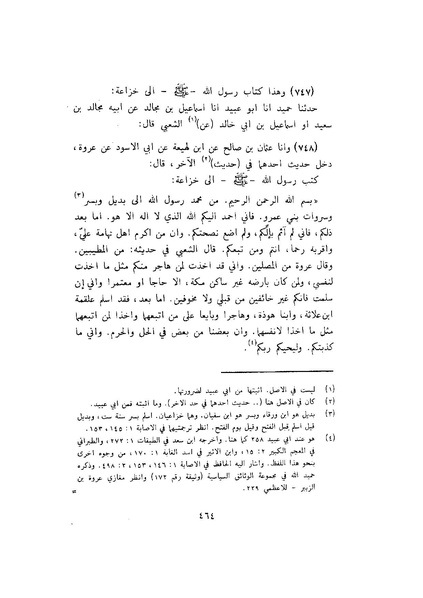 (٧٤٧) وهذا كتاب رسول الله -ﷺ - الى خزاعة:
حدثنا حميد انا ابو عبيد انا اسماعيل بن مجالد عن ابيه مجالد بن
سعيد او اسماعيل بن ابي خالد (عن)(١) الشعبي قال:
(٧٤٨) وانا عثمان بن صالح عن ابن لهيعة عن ابي الاسود عن عروة،
دخل حديث احدهما في (حديث)(٢) الآخر، قال:
كتب رسول الله - ﷺ - الى خزاعة:
«بسم الله الرحمن الرحيم. من محمد رسول الله الى بديل وبسر(٣)
وسروات بني عمرو. فاني احمد اليكم الله الذي لا اله الا هو. اما بعد
ذلكم، فاني لم أثم بإلّكم، ولم اضع نصحتكم. وان من اكرم اهل تهامة عليّ،
واقربه رحما، انتم ومن تبعكم. قال الشعبي في حديثه: من المطيبين.
وقال عروة من المصلين. واني قد اخذت لمن هاجر منكم مثل ما اخذت
لنفسي، ولمن كان بارضه غير ساكن مكة، الا حاجا او معتمرا واني إن
سلمت فانكم غير خائفين من قبلي ولا مخوفين. اما بعد، فقد اسلم علقمة
ابن علاثة، وابنا هوذة، وهاجرا وبايعا على من اتبعهما واخذا لمن اتبعهما
مثل ما اخذا لانفسهما. وان بعضنا من بعض في الحل والحرم. واني ما
كذبتكم. وليحيكم ربكم(٤).
(١) ليست في الاصل. اثبتها من ابي عبيد لضرورتها.
(٢) كان في الاصل هنا (.. حديث احدهما في حد الاخر). وما اثبته فمن ابي عبيد.
(٣) بديل هو ابن ورقاء وبسر هو ابن سفيان. وهما خزاعيان. اسلم بسر سنة ست، وبديل
قيل اسلم قبل الفتح وقيل يوم الفتح. انظر ترجمتيهما في الاصابة ١: ١٤٥، ١٥٣.
(٤) هو عند ابي عبيد ٢٥٨ كما هنا. واخرجه ابن سعد في الطبقات ١: ٢٧٢، والطبراني
في المعجم الكبير ٢: ١٥، وابن الاثير في اسد الغابة ١: ١٧٠، من وجوه اخرى
بنحو هذا اللفظ. واشار اليه الحافظ في الاصابة ١: ١٤٦، ١٥٣، ٢: ٤٩٨. وذكره
حميد الله في مجموعة الوثائق السياسية (وثيقة رقم ١٧٢) وانظر مغازي عروة بن
الزبير - للاعظمي ٢٢٩.
٤٦٤